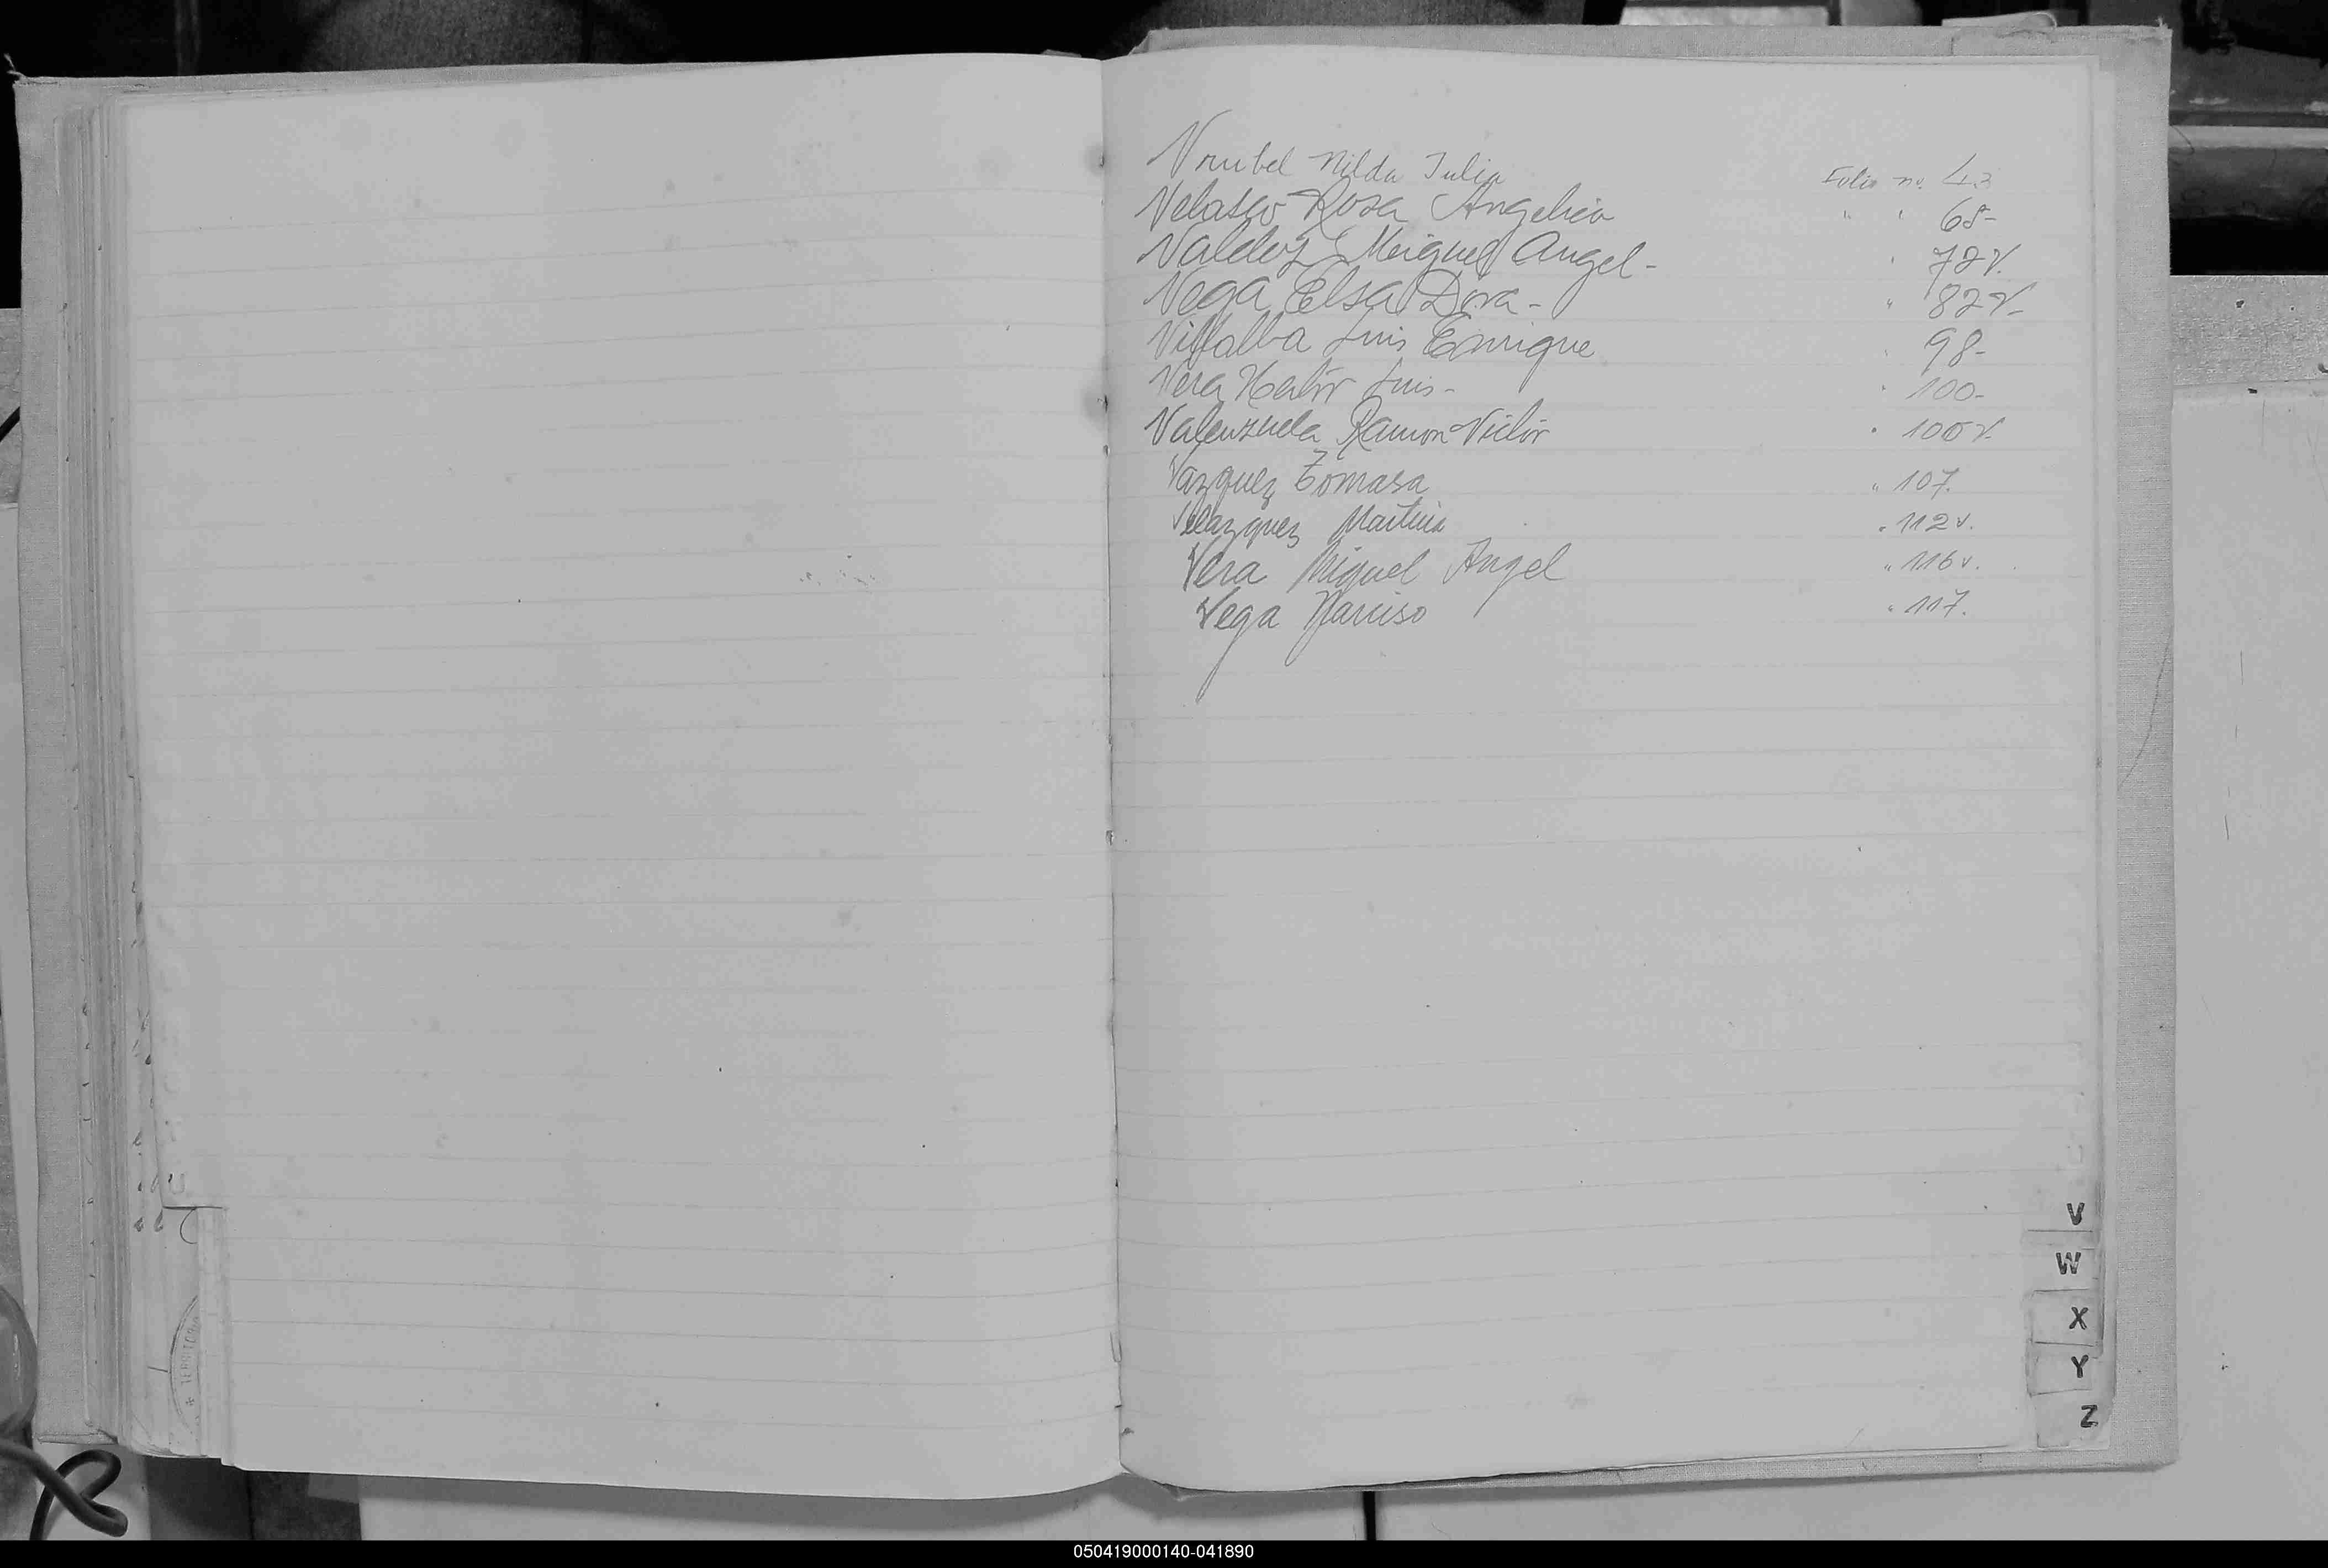 Vrubel Nilda Julia Folio no. 43
Velasco Rosa Angelica " " 68-
Valdez Miguel Angel- " 72v.
Vega Elsa Dora- " 82v-
Villalba Luis Enrique " 98-
Vera Luis- " 100-
Valenzuela Ramon Victor " 100v.
Vazquez Tomasa " 107.
Velazquez Martina " 112v.
Vera Miguel Angel " 116v.
Vega Narciso " 117.
V
W
X
Y
Z
050419000140-041890